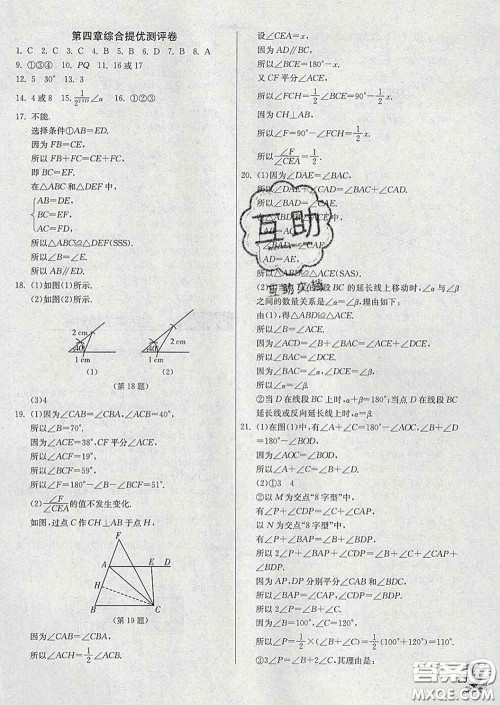 第四章综合提优测评卷
1. C  2. C  3. B  4. C  5. B  6. D  7. B  8. A
9. ①③④  10. PQ  11. 16或17
12. 5  30°  13. 3
14. 4或8  16. ①②③
17. 不能.
选择条件①AB=ED.
因为FB=CE,
所以FB+FC=CE+FC,
即BC=EF.
在△ABC和△DEF中,
AB=DE,
BC=EF,
AC=FD,
所以△ABC≌△DEF(SSS).
所以∠ABC=∠DEF.
所以AB∥ED.
18. (1)如图(1)所示.
(2)如图(2)所示.
2 cm
40°
1 cm
(1)
2 cm
40°
1 cm
(2)
(第18题)
(3)4
19. (1)因为∠CAB=∠CBA,∠ACB=40°,
所以∠B=70°.
因为∠ACE=38°,CF平分∠ACE,
所以∠ACF=19°.
所以∠BCF=59°.
所以∠F=180°-∠B-∠BCF=51°.
(2)∠F/∠CEA的值不发生变化.
如图,过点C作CH⊥AB于点H,
F
A E D
H
B C
(第19题)
因为∠CAB=∠CBA,
所以∠ACH=1/2∠ACB.
设∠CEA=x,
因为AD∥BC,
所以∠BCE=180°-x.
又CF平分∠ACE,
所以∠FCH=1/2∠BCE=90°-1/2x.
因为CH⊥AB,
所以∠F=90°-∠FCH=1/2x.
所以∠F/∠CEA=1/2.
20. (1)因为∠DAE=∠BAC,
所以∠DAE+∠CAD=∠BAC+∠CAD.
所以∠BAD=∠CAE.
∠BAD=∠CAE,
AD=AE,
所以△ABD≌△ACE(SAS).
BC的延长线上移动时,∠α与∠β
之间的数量关系是∠α=∠β,理由如下:
由(1),得△ABD≌△ACE,
所以∠α=∠β.
②当D在线段BC上时,α+β=180°;当点D在线段BC
延长线或反向延长线上时,α=β.
21. (1)在图(1)中,有∠A+∠C=180°-∠AOC,∠B+
∠D=180°-∠BOD,
因为∠AOC=∠BOD,
所以∠A+∠C=∠B+∠D.
(2)①3  4
②以M为交点“8字型”中,
有∠P+∠CDP=∠C+∠CAP,
以N为交点“8字型”中,
有∠P+∠BAP=∠B+∠BDP,
所以2∠P+∠BAP+∠CDP=∠B+∠C+∠CAP+
∠BDP.
因为AP,DP分别平分∠CAB和∠BDC,
所以∠BAP=∠CAP,∠CDP=∠BDP.
所以2∠P=∠B+∠C.
所以∠P=1/2×(∠B+∠C)=1/2(100°+120°)=110°.
③3∠P=∠B+2∠C,其理由是:
互助
互助文档
答案
MXQE.COM